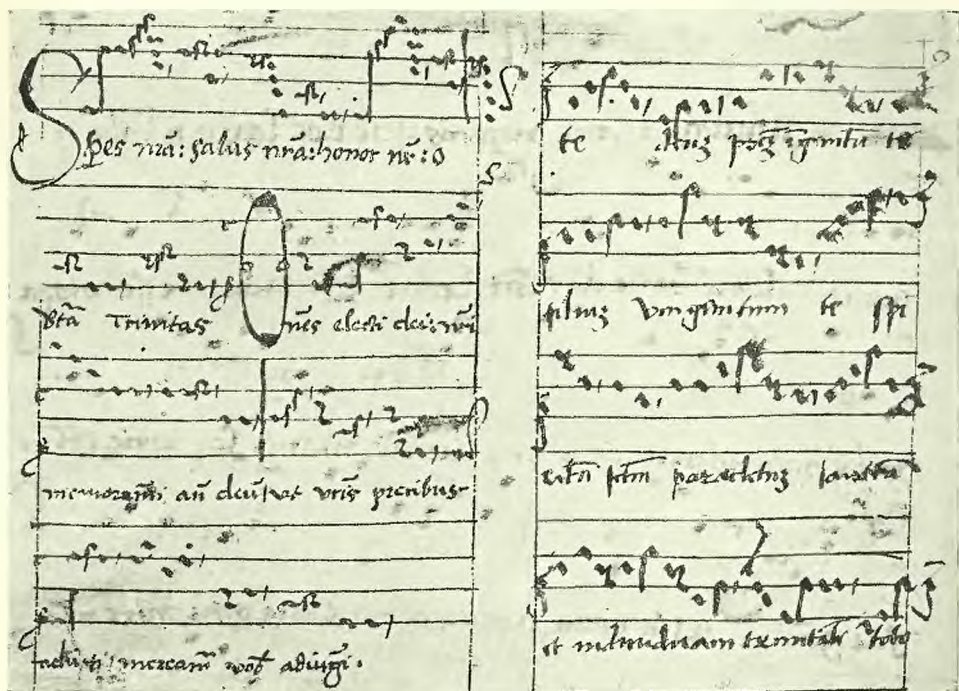 Spes nrã: salus nrã: honor nr̃: o
btã Trinitas Onẽs electi dei: nrĩ
memoramĩ añ deũ: ut vrĩs precibus
adiuti mereamr̃ vob̃ adiũgi.
te deuz patrẽ ĩgenitũ te
filiuz unigenitum te spi
paraclituz sanctã
et indiuiduam trinitatẽ toto